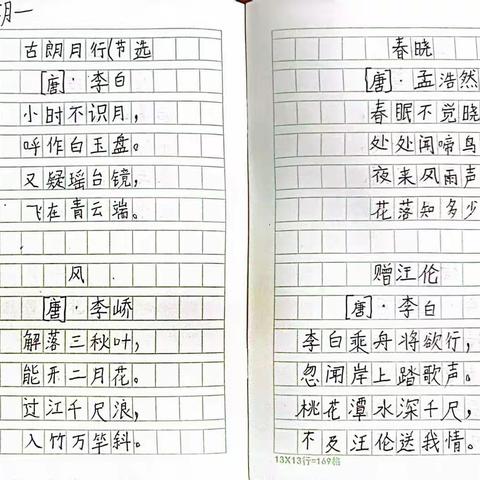 古朗月行(节选
[唐]·李白
小时不识月，
呼作白玉盘。
又疑瑶台镜，
飞在青云端。
风
[唐]·李峤
解落三秋叶，
能开二月花。
过江千尺浪，
入竹万竿斜。
春晓
[唐]·孟浩然
春眠不觉晓
处处闻啼鸟
夜来风雨声
花落知多少
赠汪伦
[唐]·李白
李白乘舟将欲行，
忽闻岸上踏歌声。
桃花潭水深千尺，
不及汪伦送我情。
13X13行=169格